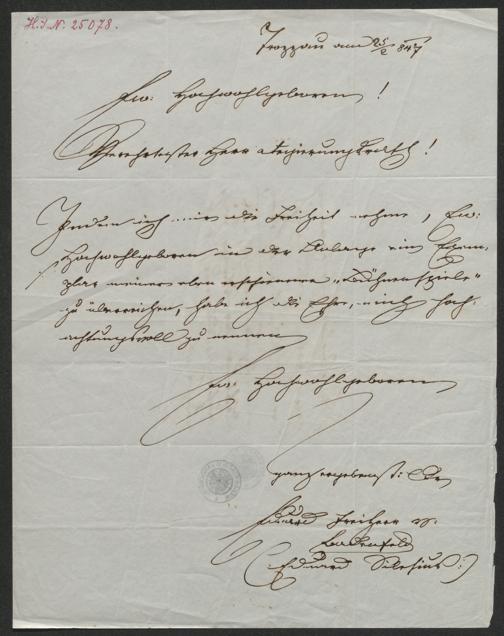 H.I.N. 25078.
Troppau am 25/2 847
Ew: Hochwohlgeboren!
Verehrtester Herr Regierungsrath!
Indem ich mir die Freiheit nehme, Ew:
Hochwohlgeboren in der Anlage ein Exem-
plar meiner eben erschienenen „Bühnenspiele"
zu überreichen, habe ich die Ehre, mich hoch-
achtungsvoll zu nennen
Ew: Hochwohlgeboren
ganz ergebenst:
Eduard Freiherr v.
Badenfeld
(Eduard Silesius:)